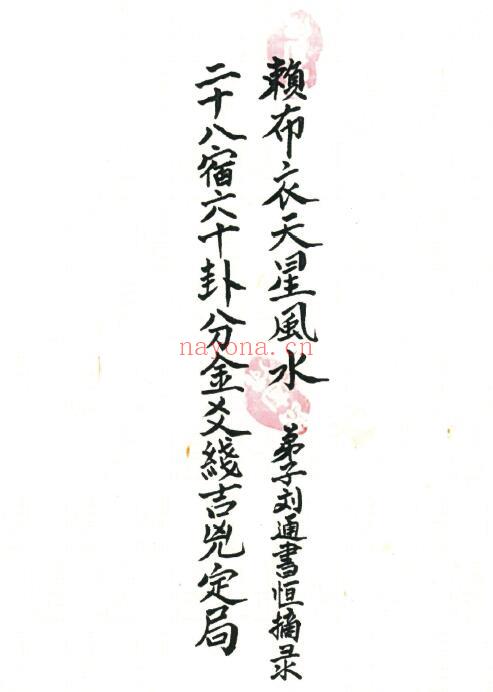 賴布衣天星風水 弟子刘通書恒摘录
二十八宿六十卦分金爻綫吉兇定局
nayona.cn